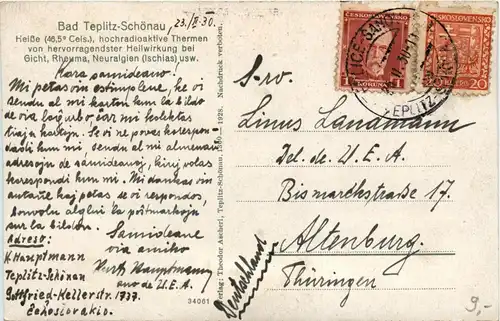 Bad Teplitz-Schönau
23./II-30.
Heiße (46,5º Cels.), hochradioaktive Thermen
von hervorragendster Heilwirkung bei
Gicht, Rheuma, Neuralgien (Ischias) usw.
Kara samideano.
Mi petas vin estimplene, ke vi
sendu al mi kartoj kun la bildo
de via loĝurbo ĉar mi kolektas
tiajn kartojn. Se vi ne povas korespon-
dadi kun mi, sendu al mi almenaŭ
adresojn de samideanoj, kiuj volas
korespondi kun mi. Mi dankas vin
antaŭe kaj petas ke vi respondos,
bonvolu alglui la poŝtmarkojn
sur la bildon.
Samideane
via amiko
Kurt Hauptmann
ano de U.E.A.
Adreso:
K. Hauptmann
Teplitz-Schönau
Gottfried-Kellerstr. 1737.
Ĉeĥoslovakio.
34061
Verlag: Theodor Ascherl, Teplitz-Schönau, 1928. Nachdruck verboten.
ČESKOSLOVENSKO
1 KORUNA 1
ČESKOSLOVENSKO
20
TEPLITZ
S-ro.
Linus Landmann
Del. de U.E.A.
Bismarckstraße 17.
Altenburg.
Thüringen
Deutschland
9,-